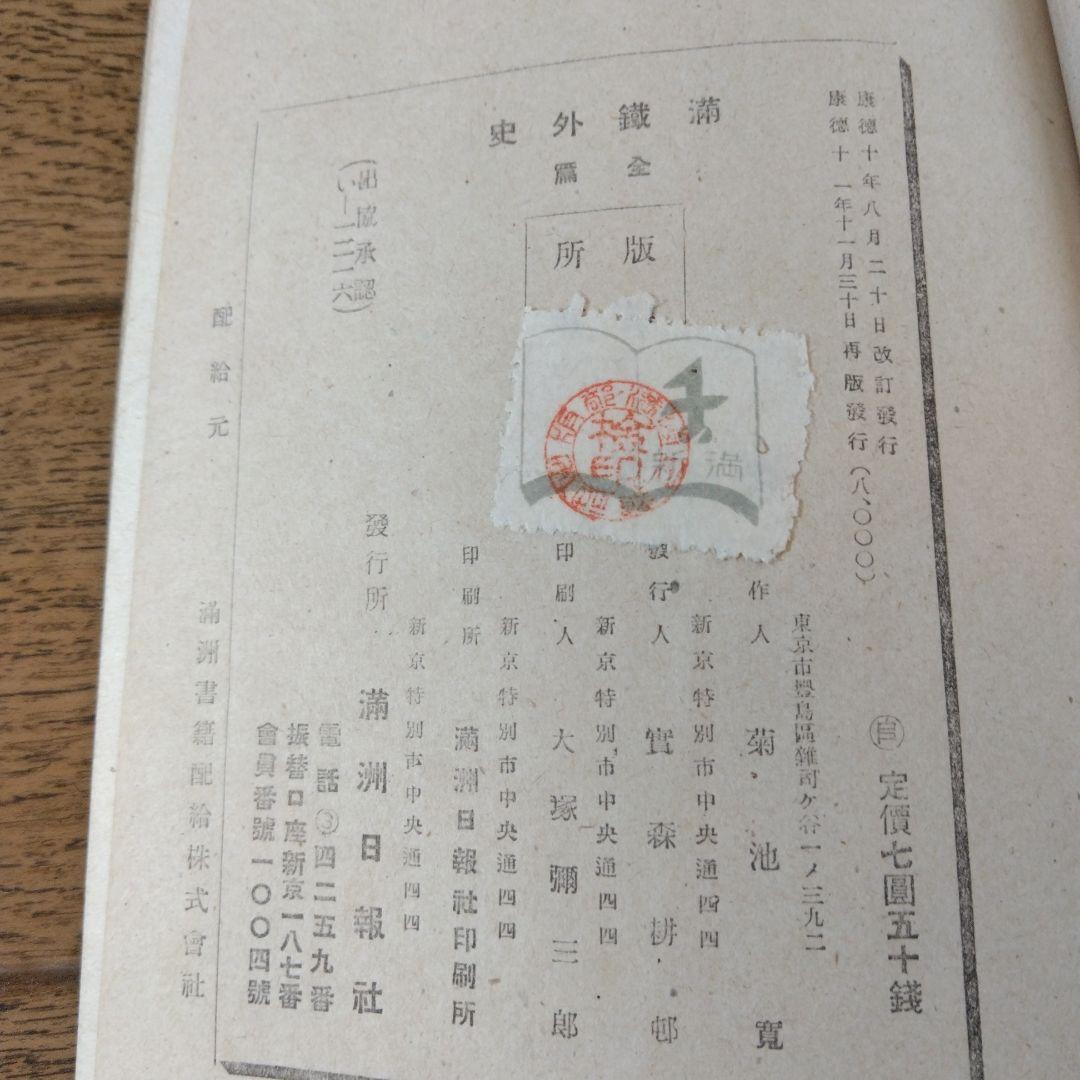 康德十年八月二十日改訂發行
康德十一年十一月三十日再版發行(八、〇〇〇)
自 定價七圓五十錢
滿鐵外史
全篇
版
所
滿新
東京市豐島區雜司ケ谷一ノ三九二
作人 菊池寬
新京特別市中央通四四
發行人 實森耕邨
新京特別市中央通四四
印刷人 大塚彌三郎
新京特別市中央通四四
印刷所 滿洲日報社印刷所
新京特別市中央通四四
發行所 滿洲日報社
電話③四二五九番
振替口座新京一八七番
會員番號一〇〇四號
(出協承認
配給元 滿洲書籍配給株式會社